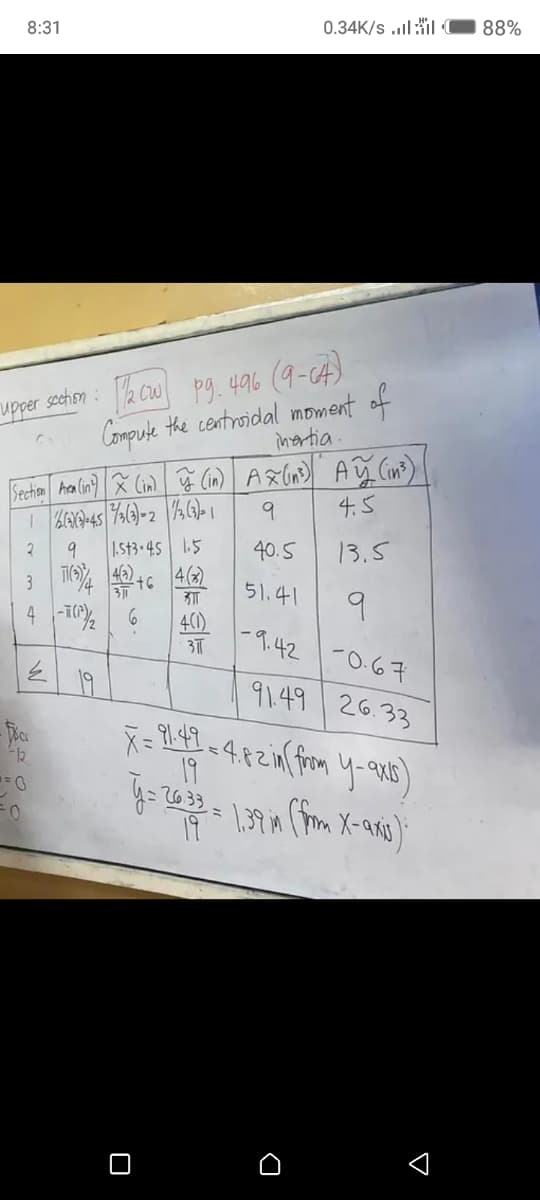 8:31 0.34K/s 88%
upper section : 1/2 CW pg. 496 (9-C4)
Compute the centroidal moment of
inertia.
Section Area (in²) x̃ (in) ỹ (in) Ax̃ (in³) Aỹ (in³)
1 ½(3)(3)=45 ⅔(3)=2 ⅓(3)=1 9 4.5
2 9 1.5+3=45 1.5 40.5 13.5
3 π(3)²/4 4(3)/3π +6 4(3)/3π 51.41 9
4 -π(1²)/2 6 4(1)/3π -9.42 -0.67
Σ 19 91.49 26.33
x̄ = 91.49/19 = 4.82 in (from y-axis)
ȳ = 26.33/19 = 1.39 in (from x-axis)
-12
=0
=0